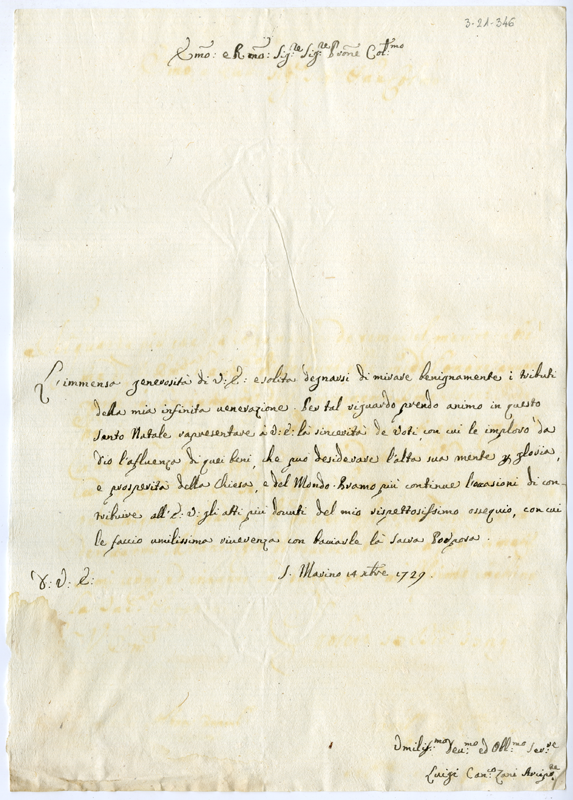 3-21-346
Emo: e R mo: Sig:re Sig:re Prone Col:mo
L'immensa generosità di V: E: è solita degnarsi di mirare benignamente i tributi
della mia infinita venerazione. Per tal riguardo prendo animo in questo
Santo Natale rapresentare à V: E: la sincerità de Voti, con cui le imploro da
Dio l'affluenza di quei beni, che puo desiderare l'alta sua mente p gloria,
e prosperità della Chiesa, e del Mondo. Bramo più continue l'occasioni di con-
tribuire all'E: V: gli atti più dovuti del mio rispettosissimo ossequio, con cui
le faccio umilissima riverenza con baciarle la Sacra Porpora.
D: V: E:
S. Marino 14 Xbre 1729.
Umilis:mo Deu:mo ed Obl:mo Ser:re
Luigi Can:co Zani Arcip:te